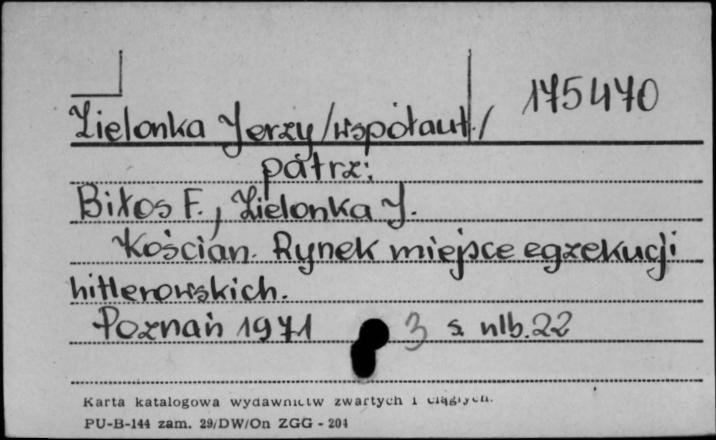 175470
Zielonka Jerzy /współaut./
patrz:
Biłos F., Zielonka J.
Kościan. Rynek miejsce egzekucji
hitlerowskich.
Poznań 1971 3 s. nlb. 22
Karta katalogowa wydawnictw zwartych i ciągłych.
PU-B-144 zam. 29/DW/On ZGG - 204